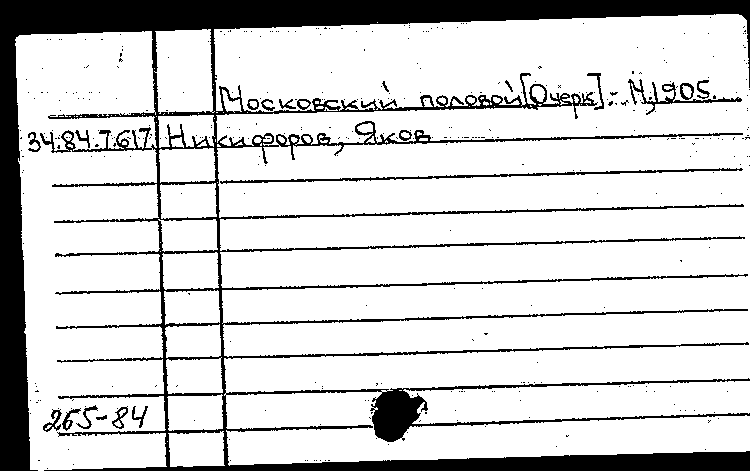 Московский половой [Очерк].- М,1905.
34.84.7.617 Никифоров, Яков
265-84